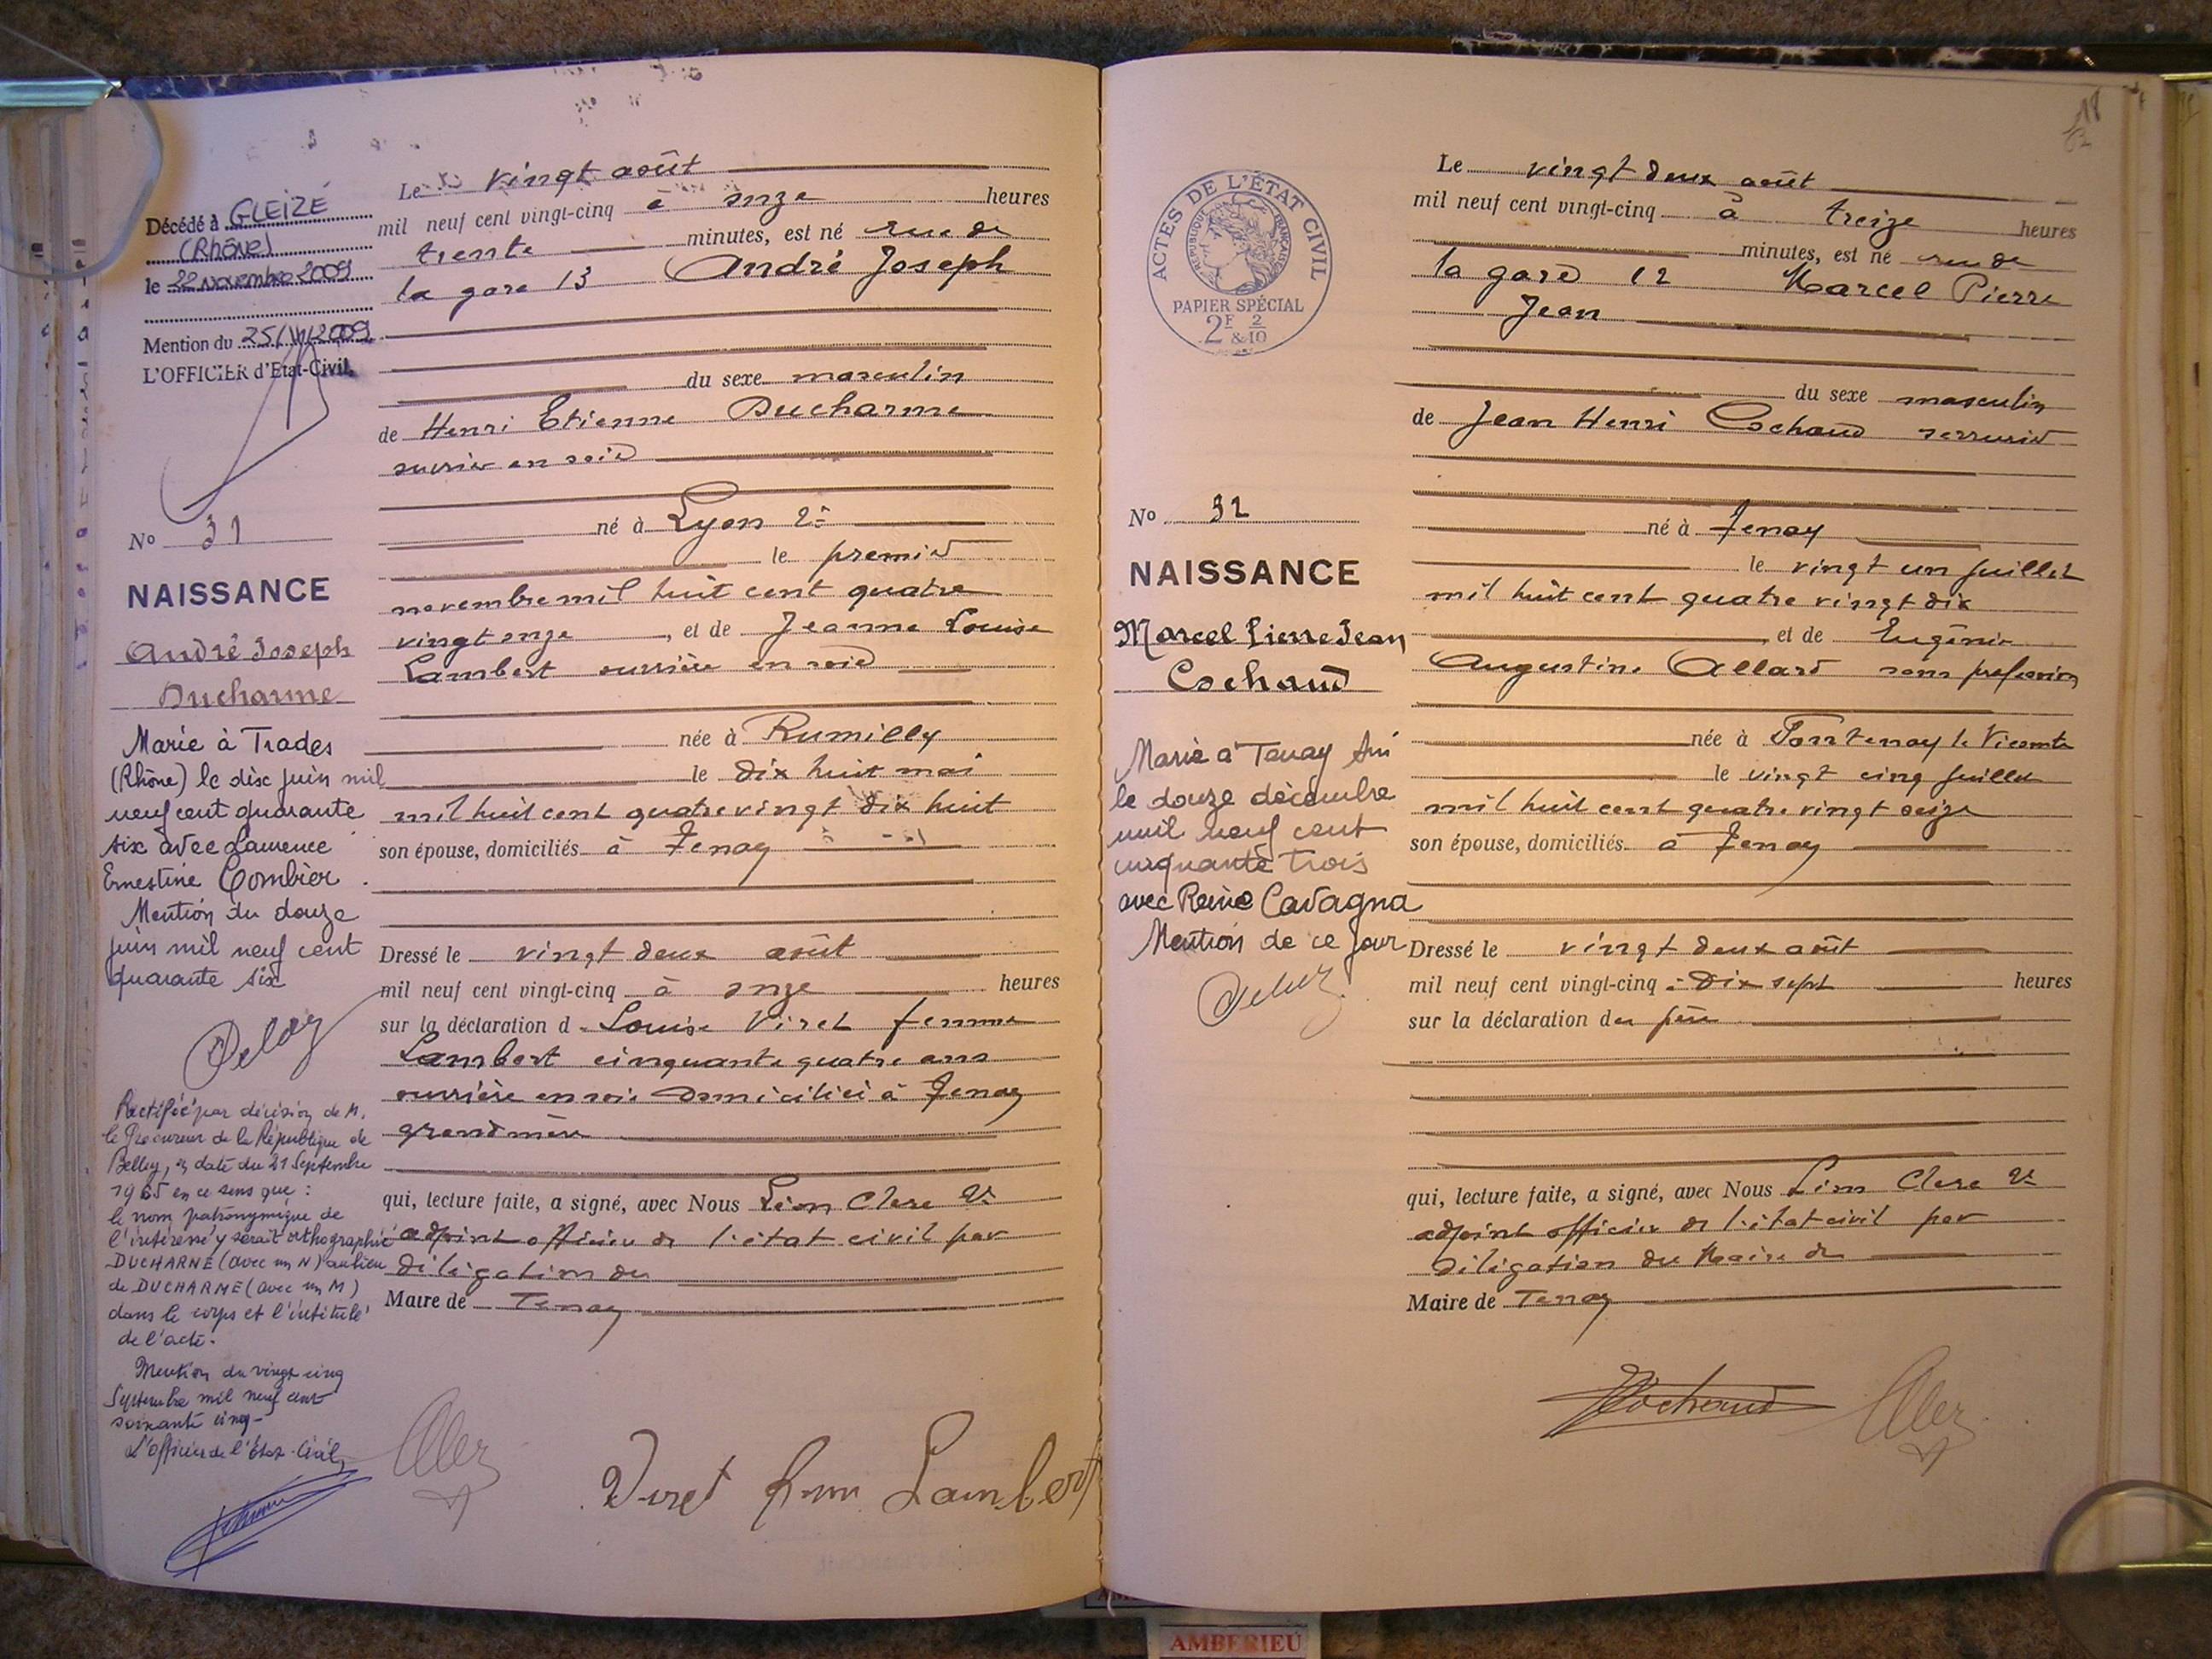 Décédé à GLEIZÉ
(Rhône)
le 22 novembre 2009
Mention du 25/11/2009
L'OFFICIER d'Etat-Civil,
No 31
NAISSANCE
André Joseph
Ducharme
Marié à Trades
(Rhône) le dix juin mil
neuf cent quarante
six avec Laurence
Ernestine Combier.
Mention du douze
juin mil neuf cent
quarante six
Rectifié par décision de M.
le Procureur de la République de
Belley, en date du 21 Septembre
1965 en ce sens que :
le nom patronymique de
l'intéressé y serait orthographié
DUCHARNE (avec un N) au lieu
de DUCHARME (avec un M)
dans le corps et l'intitulé
de l'acte.
Mention du vingt cinq
Septembre mil neuf cent
soixante cinq -
L'officier de l'État-Civil,
Le vingt août
mil neuf cent vingt-cinq à onze heures
trente minutes, est né rue de
la gare 13 André Joseph
du sexe masculin
de Henri Etienne Ducharme
ouvrier en soie
né à Lyon 2e
le premier
novembre mil huit cent quatre
vingt onze, et de Jeanne Louise
Lambert ouvrière en soie
née à Rumilly
le dix huit mai
mil huit cent quatre vingt dix huit
son épouse, domiciliés à Tenay
Dressé le vingt deux août
mil neuf cent vingt-cinq à onze heures
sur la déclaration d Louise Viret femme
Lambert cinquante quatre ans
ouvrière en soie domiciliée à Tenay
grand mère
qui, lecture faite, a signé, avec Nous Léon Clerc 2e
adjoint officier de l'état civil par
délégation du
Maire de Tenay
Viret femme Lambert
18
ACTES DE L'ÉTAT CIVIL
RÉPUBLIQUE FRANÇAISE
PAPIER SPÉCIAL
2F & 2/10
No 32
NAISSANCE
Marcel Pierre Jean
Cochaud
Marié à Tenay Ain
le douze décembre
mil neuf cent
cinquante trois
avec Reine Cavagna
Mention de ce jour
Le vingt deux août
mil neuf cent vingt-cinq à treize heures
minutes, est né rue de
la gare 12 Marcel Pierre
Jean
du sexe masculin
de Jean Henri Cochaud serrurier
né à Tenay
le vingt un juillet
mil huit cent quatre vingt dix
et de Eugénie
Augustine Allard sans profession
née à Fontenay le Vicomte
le vingt cinq juillet
mil huit cent quatre vingt seize
son épouse, domiciliés à Tenay
Dressé le vingt deux août
mil neuf cent vingt-cinq à dix sept heures
sur la déclaration du père
qui, lecture faite, a signé, avec Nous Léon Clerc 2e
adjoint officier de l'état civil par
délégation du Maire de
Maire de Tenay
Cochaud
AMBERIEU